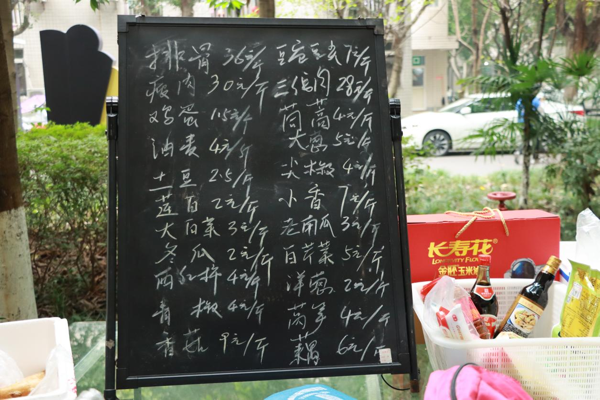 排骨 36元/斤
瘦肉 30元/斤
鸡蛋 15元/斤
油麦 4元/斤
土豆 2.5/斤
莲白 2元/斤
大白菜 3元/斤
冬瓜 2元/斤
西红柿 4元/斤
青椒 4元/斤
香菇 9元/斤
7元/斤
三线肉 28元/斤
茼蒿 4元/斤
大葱 5元/斤
尖椒 4元/斤
小香 7元/斤
老南瓜 3元/斤
白芹菜 5元/斤
洋葱 2元/斤
莴笋 4元/斤
藕 6元/斤
长寿花
LONGEVITY FLOWER
金胚玉米油